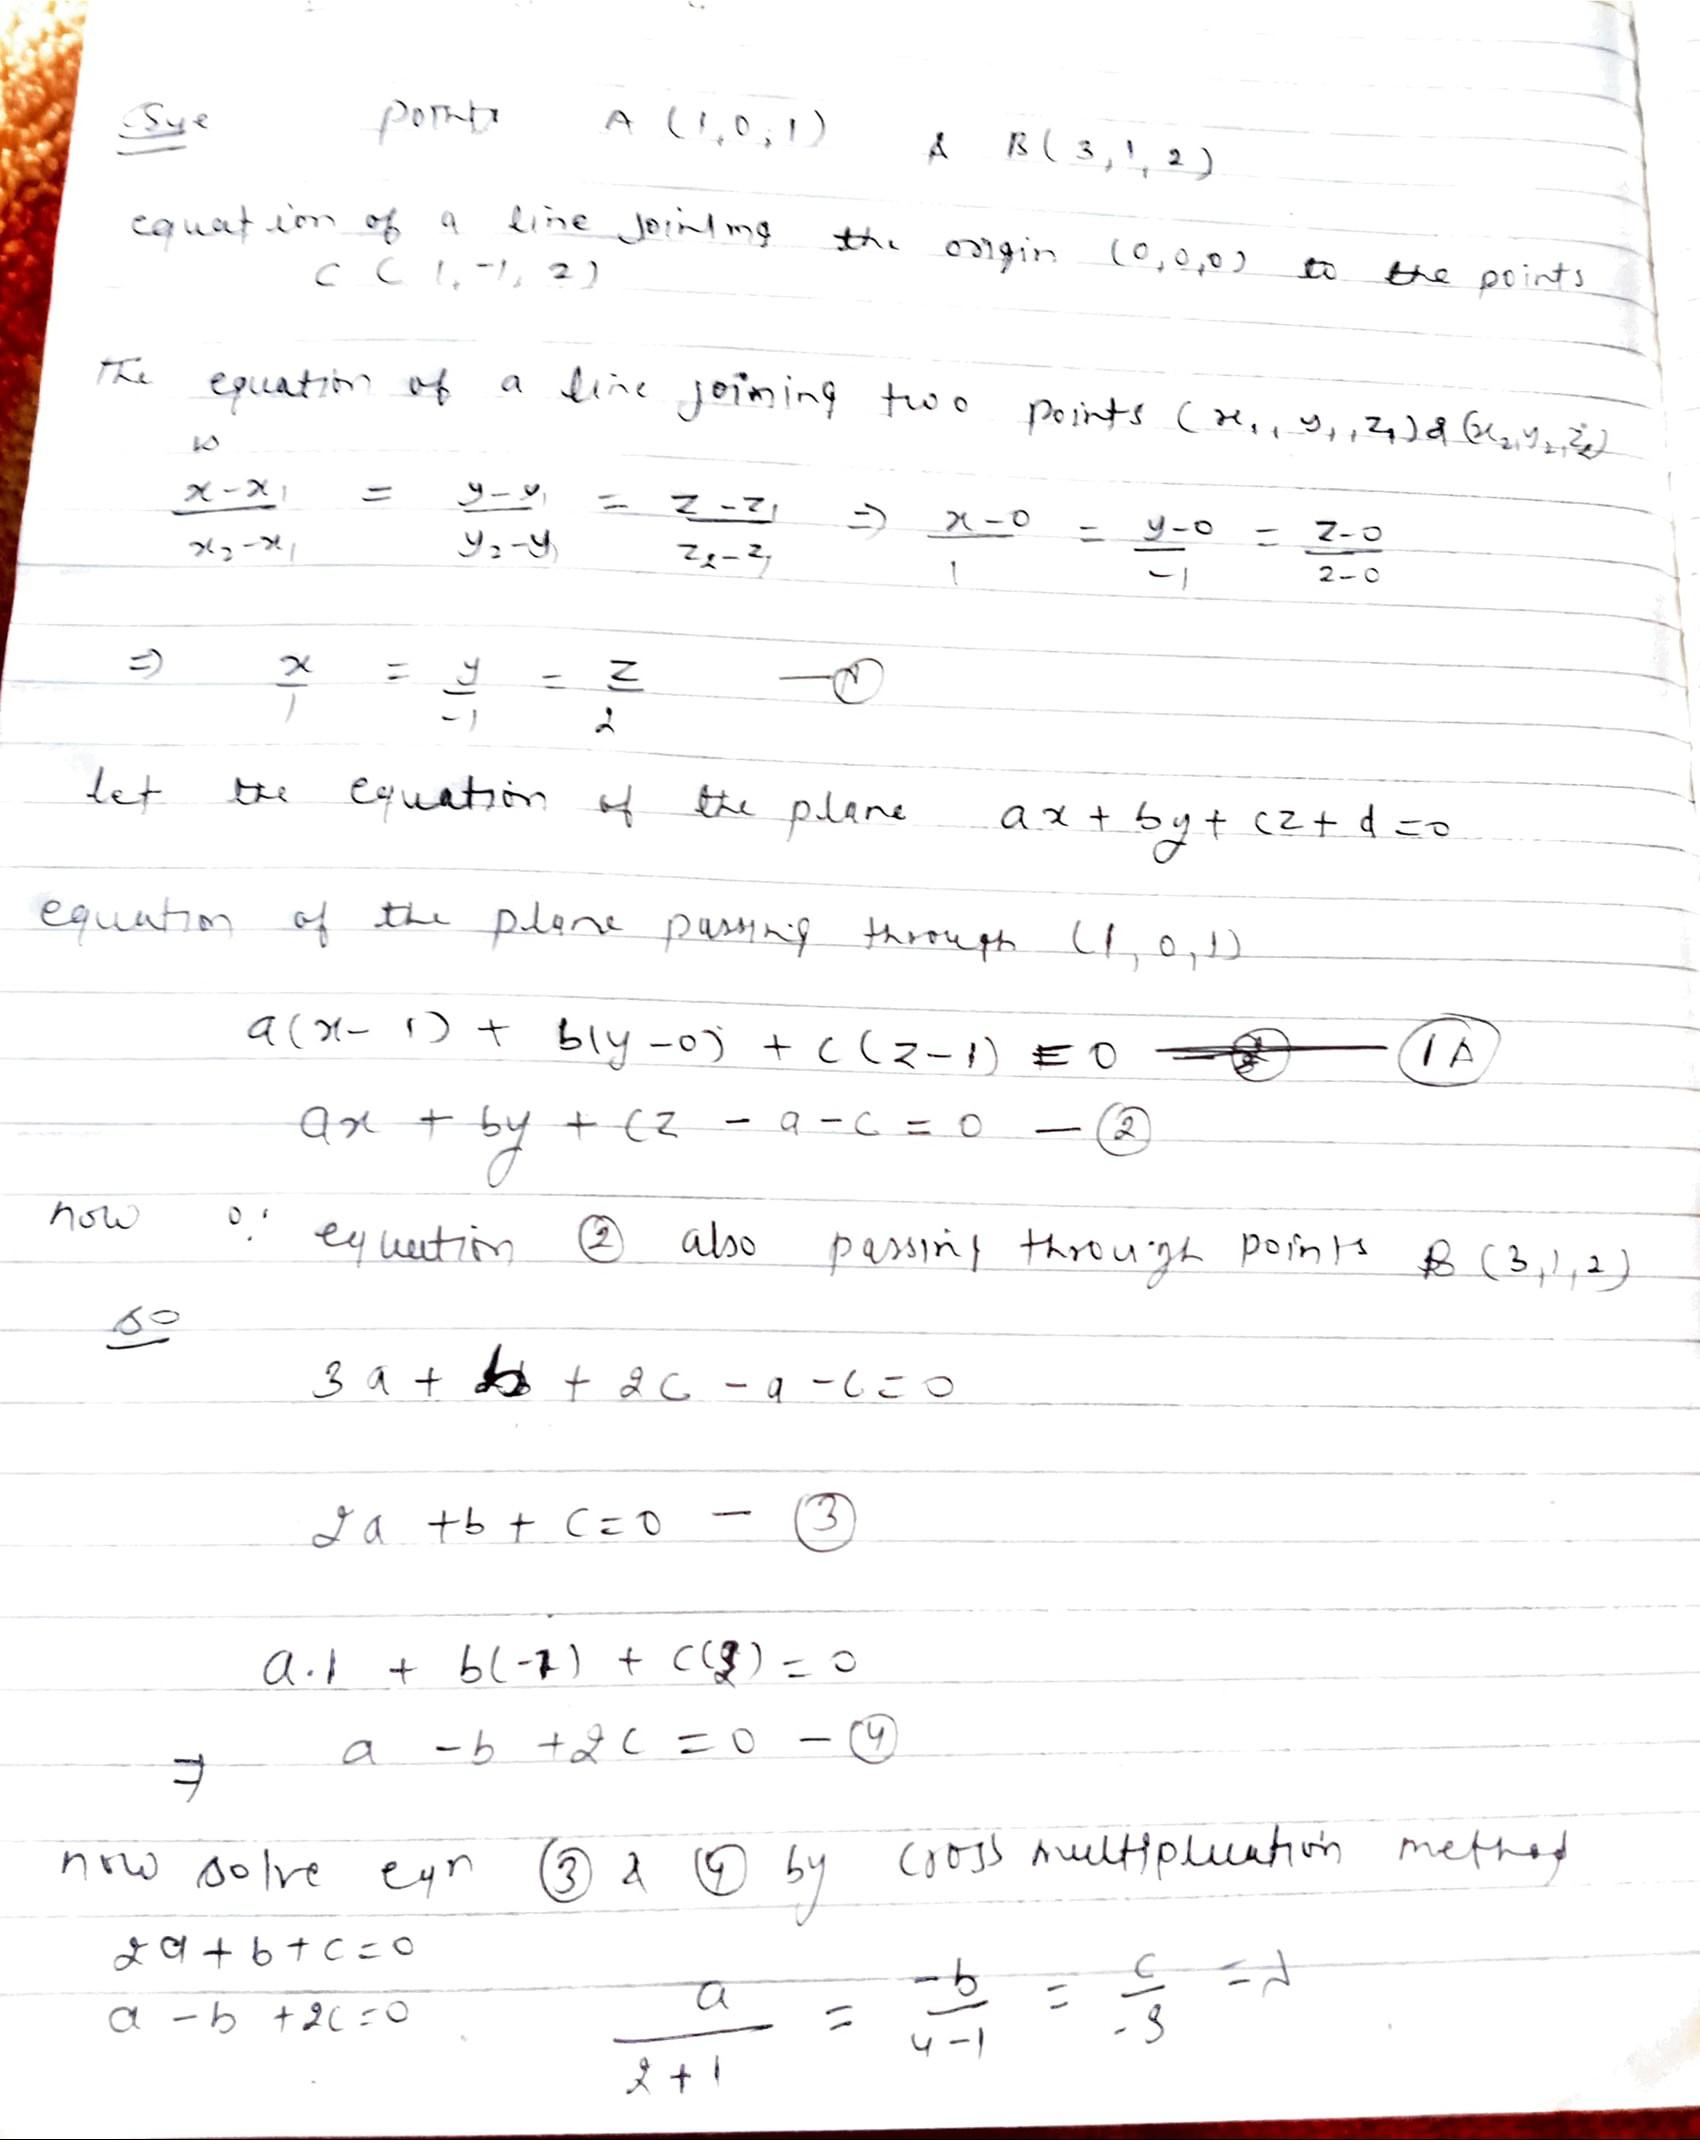 points A (1,0,1) & B(3,1,2)
equation of a line joining the origin (0,0,0) to the points
C (1,-1,2)
The equation of a line joining two points (x₁, y₁, z₁) & (x₂, y₂, z₂)
is
x-x₁/x₂-x₁ = y-y₁/y₂-y₁ = z-z₁/z₂-z₁ ⇒ x-0/1 = y-0/-1 = z-0/2-0
⇒ x/1 = y/-1 = z/2 —①
let the equation of the plane ax + by + cz + d = 0
equation of the plane passing through (1,0,1)
a(x-1) + b(y-0) + c(z-1) = 0 — 1A
ax + by + cz - a - c = 0 — ②
now ∵ equation ② also passing through points B (3,1,2)
so
3a + b + 2c - a - c = 0
2a + b + c = 0 — ③
a.1 + b(-1) + c(2) = 0
⇒ a - b + 2c = 0 — ④
now solve eqn ③ & ④ by cross multiplication method
2a + b + c = 0
a - b + 2c = 0 a/2+1 = -b/4-1 = c/-3 = λ